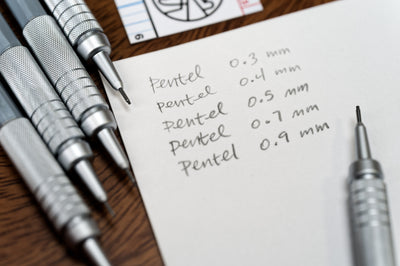 Pentel 0.3 mm
Pentel 0.4 mm
Pentel 0.5 mm
Pentel 0.7 mm
Pentel 0.9 mm